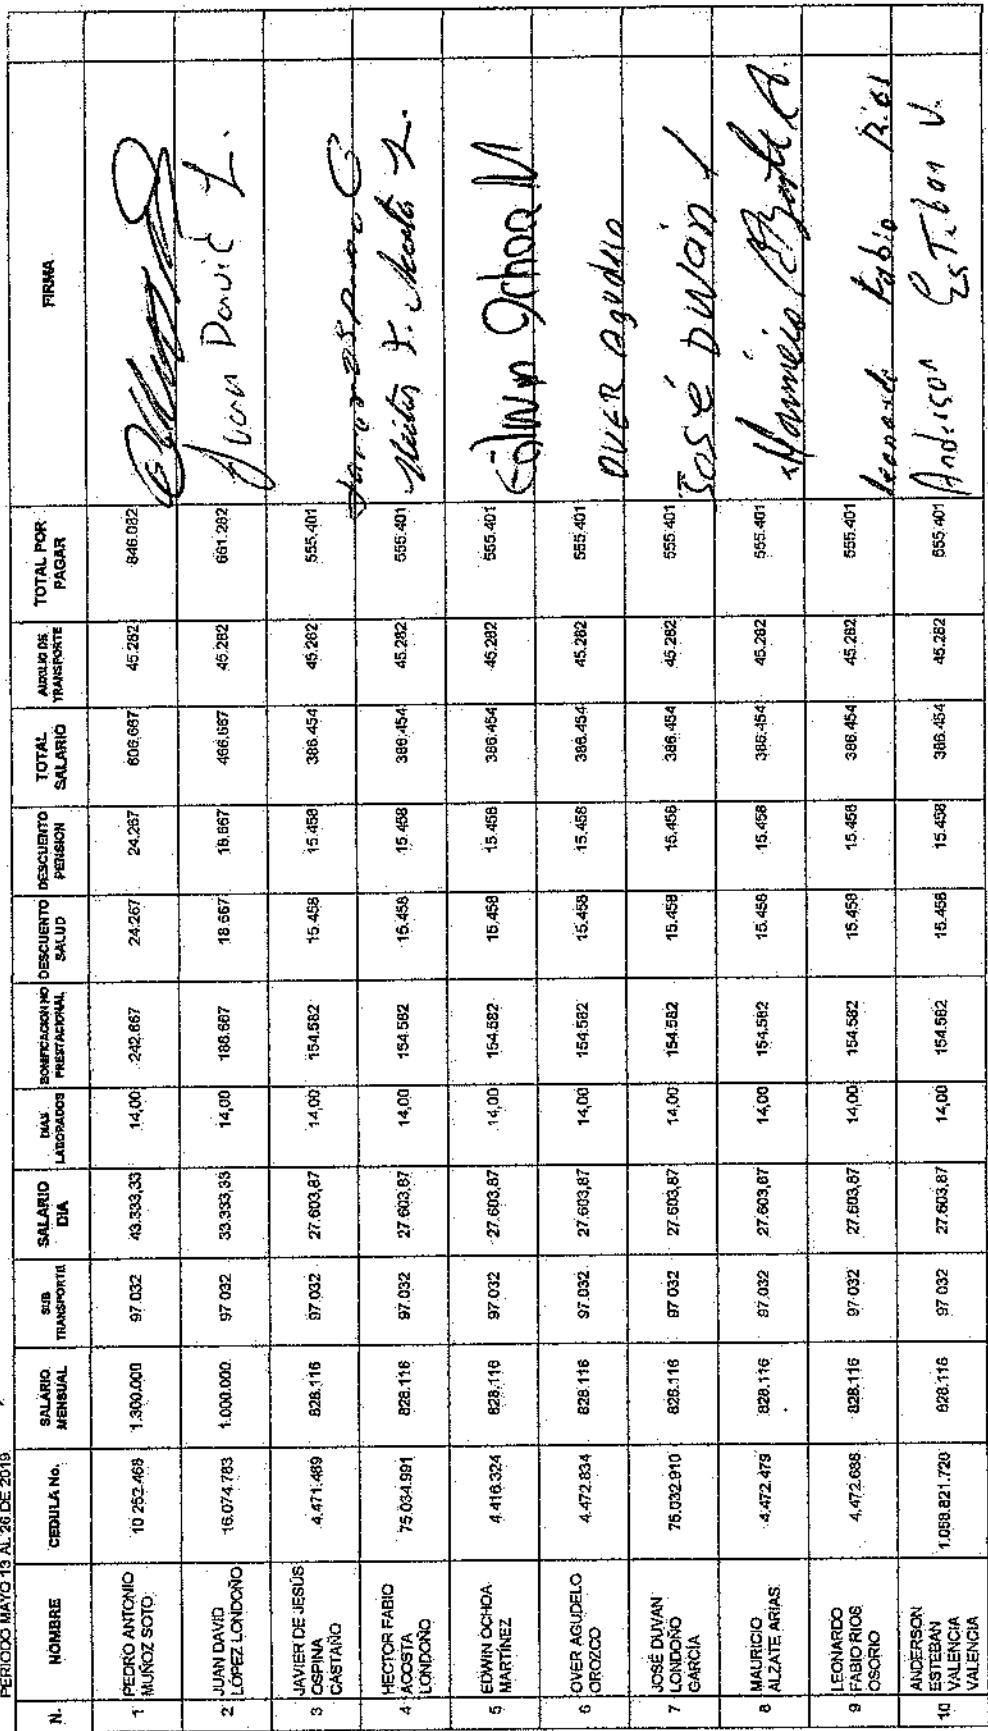 PERIODO MAYO 13 AL 26 DE 2019
N. NOMBRE CEDULA No. SALARIO MENSUAL SUB TRANSPORTE SALARIO DIA DIAS LABORADOS BONIFICACION NO PRESTACIONAL DESCUENTO SALUD DESCUENTO PENSION TOTAL SALARIO AUXILIO DE TRANSPORTE TOTAL POR PAGAR FIRMA
1 PEDRO ANTONIO MUÑOZ SOTO 10.252.468 1.300.000 97.032 43.333,33 14,00 242.667 24.267 24.267 606.667 45.282 846.082
2 JUAN DAVID LÓPEZ LONDOÑO 16.074.783 1.000.000 97.032 33.333,33 14,00 186.667 18.667 18.667 466.667 45.282 661.282 Juan David L.
3 JAVIER DE JESÚS OSPINA CASTAÑO 4.471.489 828.116 97.032 27.603,87 14,00 154.582 15.458 15.458 386.454 45.282 555.401
4 HECTOR FABIO ACOSTA LONDOÑO 75.034.991 828.116 97.032 27.603,87 14,00 154.582 15.458 15.458 386.454 45.282 555.401 Hector F. Acosta L.
5 EDWIN OCHOA MARTÍNEZ 4.416.324 828.116 97.032 27.603,87 14,00 154.582 15.458 15.458 386.454 45.282 555.401 Edwin Ochoa M
6 OVER AGUDELO OROZCO 4.472.834 828.116 97.032 27.603,87 14,00 154.582 15.458 15.458 386.454 45.282 555.401 OVER agudelo
7 JOSÉ DUVAN LONDOÑO GARCÍA 75.032.910 828.116 97.032 27.603,87 14,00 154.582 15.458 15.458 386.454 45.282 555.401 José DUVAN L
8 MAURICIO ALZATE ARIAS 4.472.479 828.116 97.032 27.603,87 14,00 154.582 15.458 15.458 386.454 45.282 555.401 Mauricio Alzate A.
9 LEONARDO FABIO RIOS OSORIO 4.472.688 828.116 97.032 27.603,87 14,00 154.582 15.458 15.458 386.454 45.282 555.401 Leonardo Fabio Rios
10 ANDERSON ESTEBAN VALENCIA VALENCIA 1.059.821.720 828.116 97.032 27.603,87 14,00 154.582 15.458 15.458 386.454 45.282 555.401 Anderson EsTeban V.